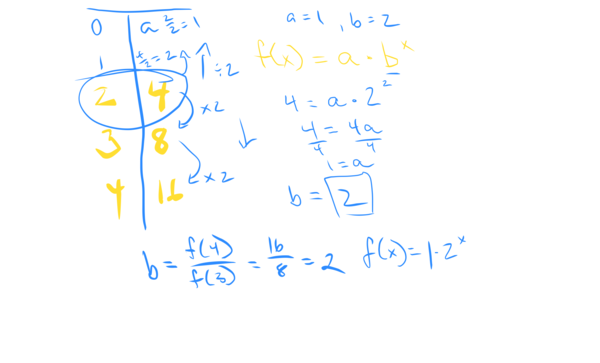 0 | a 2/2 = 1
1 | 4/2 = 2 ÷2
2 | 4
×2
3 | 8
×2
4 | 16
a=1, b=2
f(x) = a · b^x
4 = a · 2^2
4/4 = 4a/4
1 = a
b = 2
b = f(4)/f(3) = 16/8 = 2
f(x) = 1·2^x